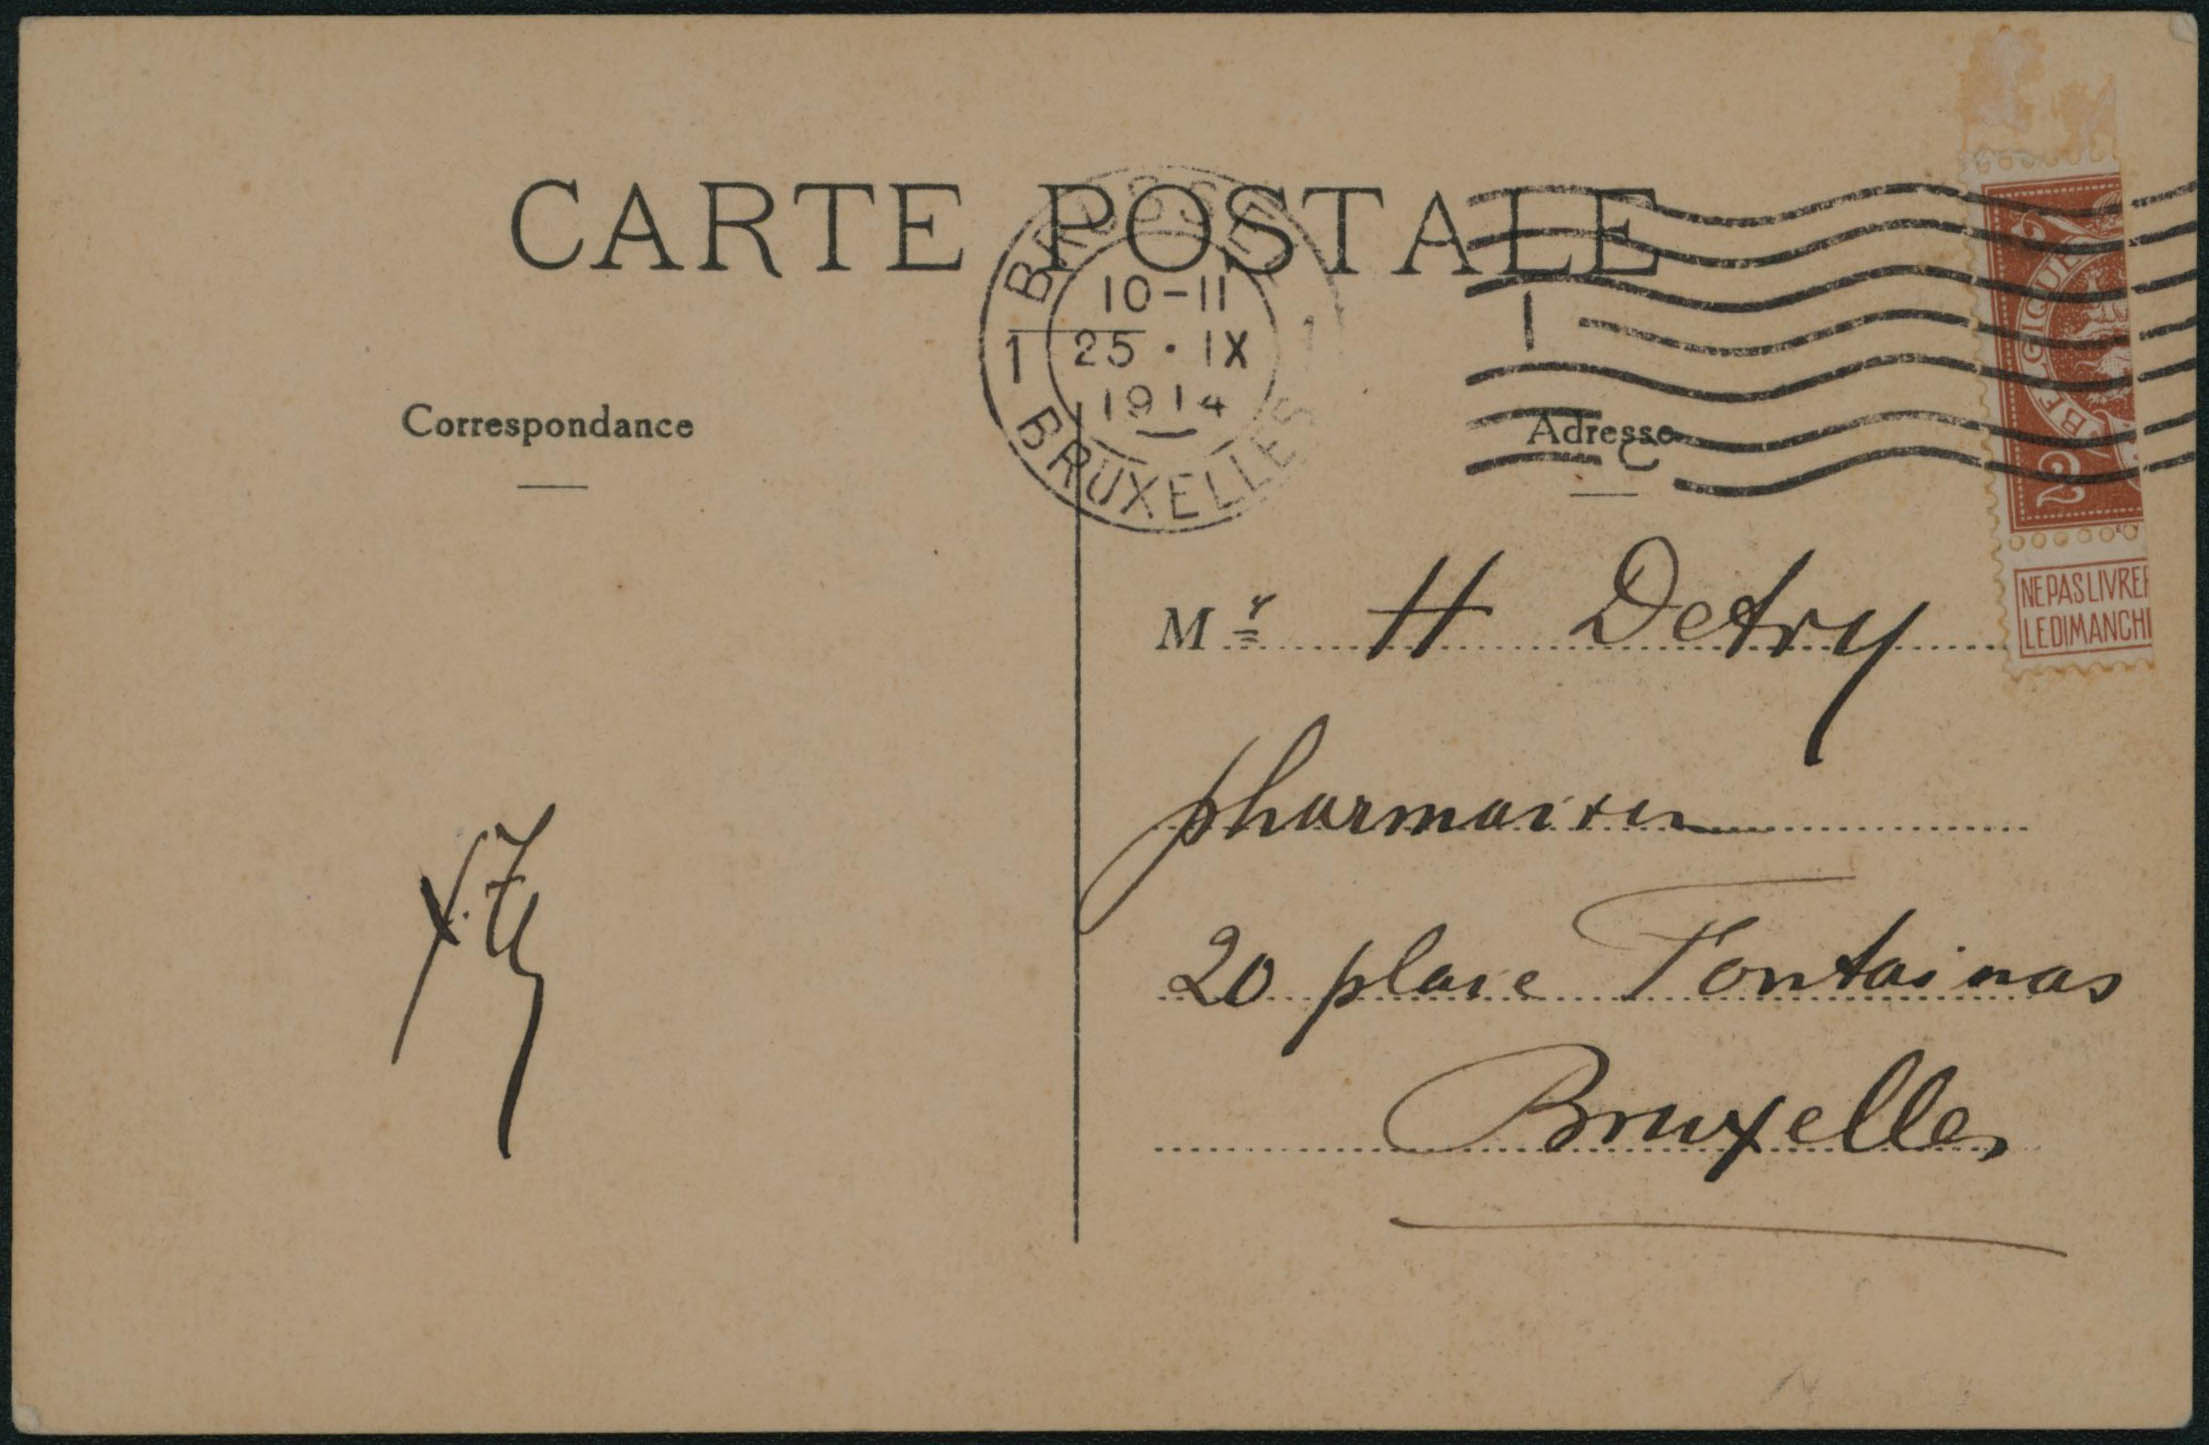 CARTE POSTALE
BRUSSEL
10-11
1 25 · IX 1
1914
BRUXELLES
Correspondance
Adresse
BELGIQUE
2
NE PAS LIVRE
LE DIMANCH
Mr H Detry
pharmacien
20 place Fontainas
Bruxelles